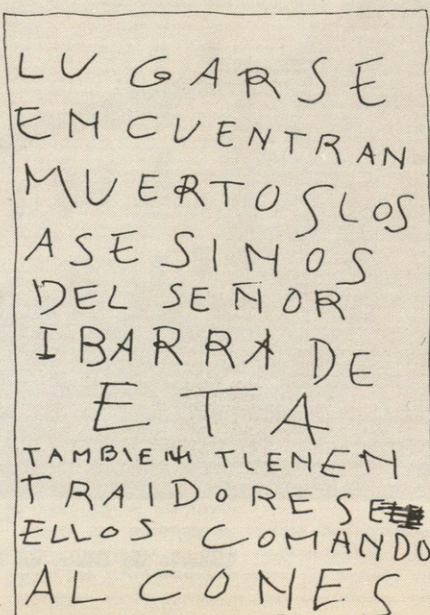 LU GARSE
ENCUENTRAN
MUERTOSLOS
ASESINOS
DEL SEÑOR
IBARRA DE
ETA
TAMBIEN TIENEN
TRAIDORESE
ELLOS COMANDO
ALCONES